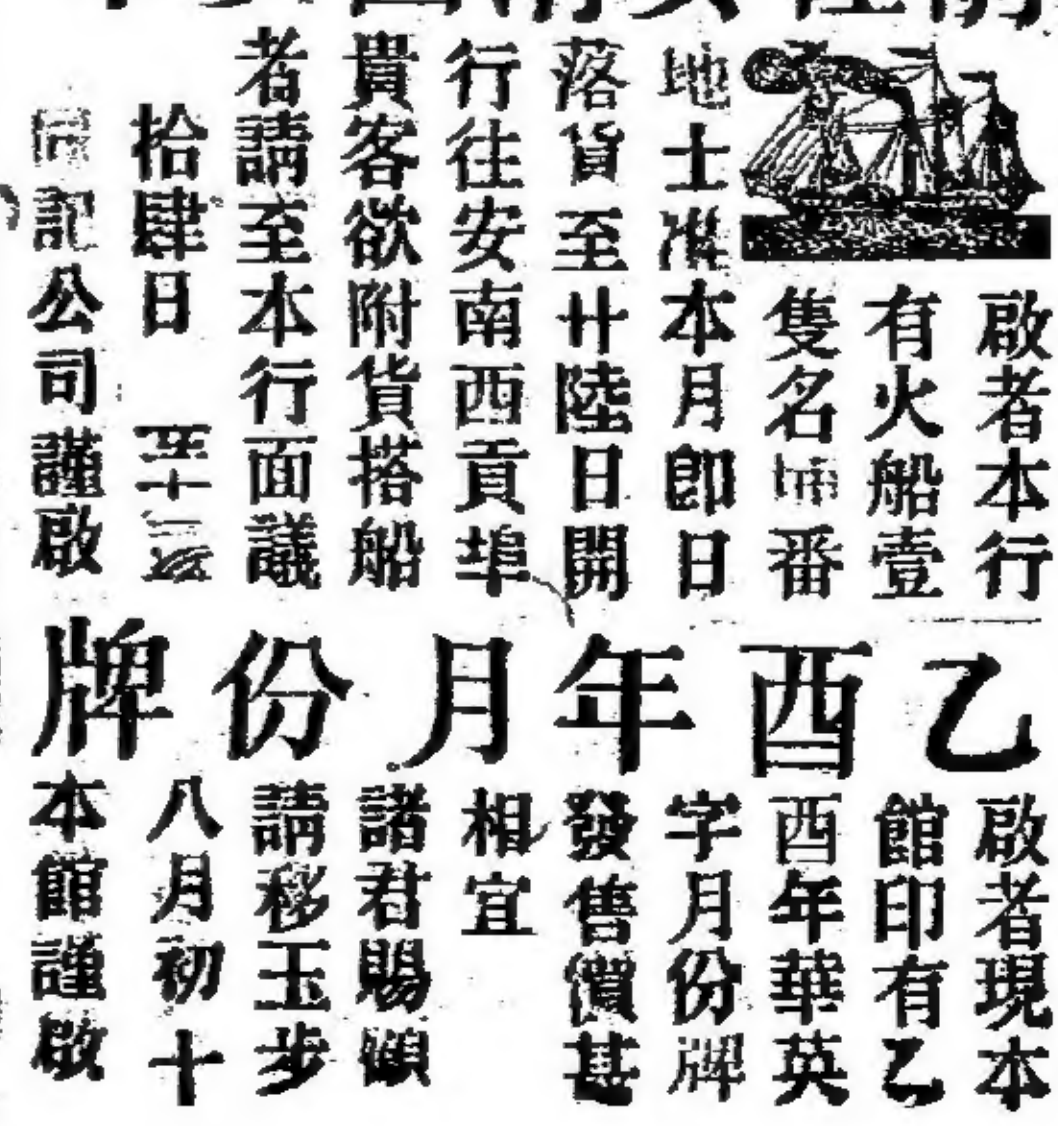 啟者本行
有火船壹
隻名㖊番
地士准本月即日
落貨至廿陸日開
行往安南西貢埠
貴客欲附貨搭船
者請至本行面議
拾肆日 五十二
同記公司謹啟
乙酉年月份牌
啟者現本
館印有乙
酉年華英
字月份牌
發售價甚
相宜
諸君賜顧
請移玉步
八月初十
本館謹啟